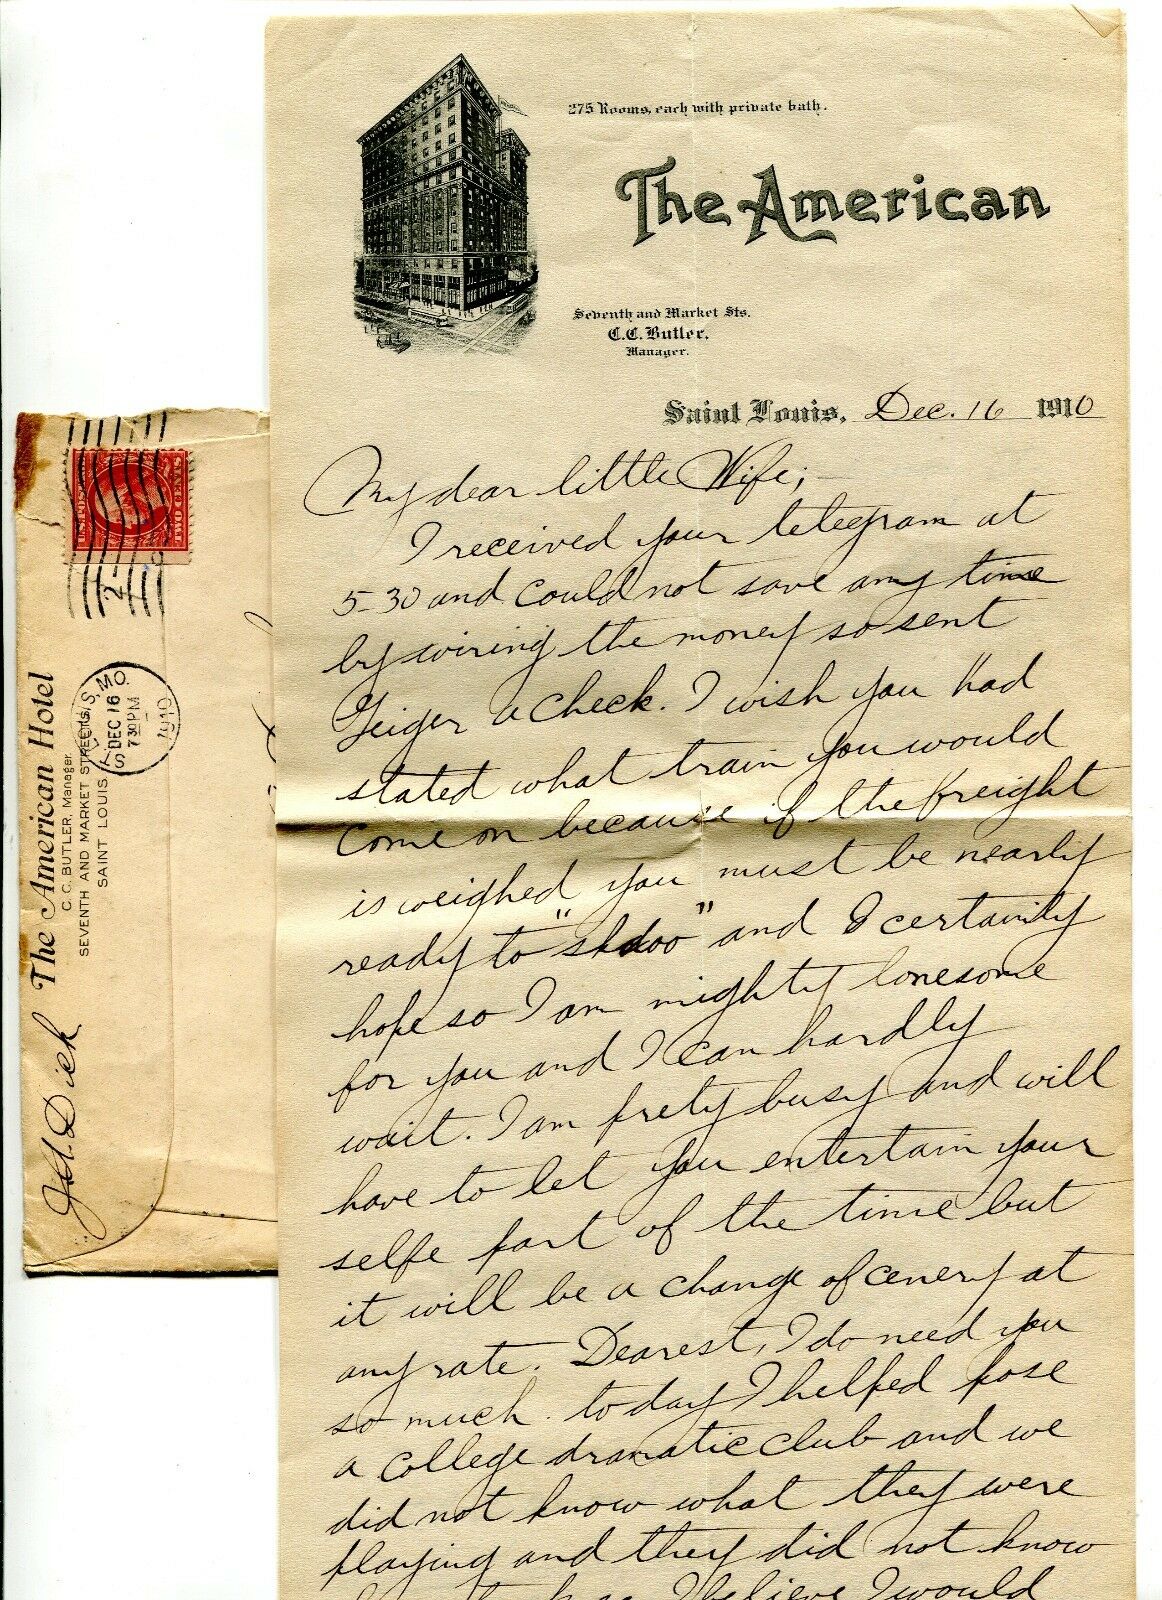 275 Rooms, each with private bath.
The American
Seventh and Market Sts.
C.C. Butler,
Manager.
Saint Louis, Dec. 16 1910
My dear little Wife;
I received your telegram at
5-30 and could not save any time
by wiring the money so sent
Geiger a check. I wish you had
stated what train you would
come on because if the freight
is weighed you must be nearly
ready to "skidoo" and I certainly
hope so I am mighty lonesome
for you and I can hardly
wait. I am prety busy and will
have to let you entertain your
selfe part of the time but
it will be a change of cenery at
any rate. Dearest, I do need you
so much. to day I helped pose
a college dramatic club and we
did not know what they were
playing and they did not know
I believe I would
The American Hotel
C. C. BUTLER, Manager
SEVENTH AND MARKET STREETS
SAINT LOUIS
ST. LOUIS, MO.
DEC 16
7 30 PM
1910
2
TWO CENTS
Dick